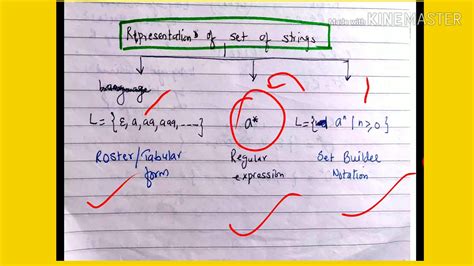 Made with KINEMASTER
Representations of set of strings
Language
L = {ε, a, aa, aaa, ----}
a*
L = { aⁿ | n ≥ 0 }
Roster/Tabular form
Regular expression
Set Builder Notation